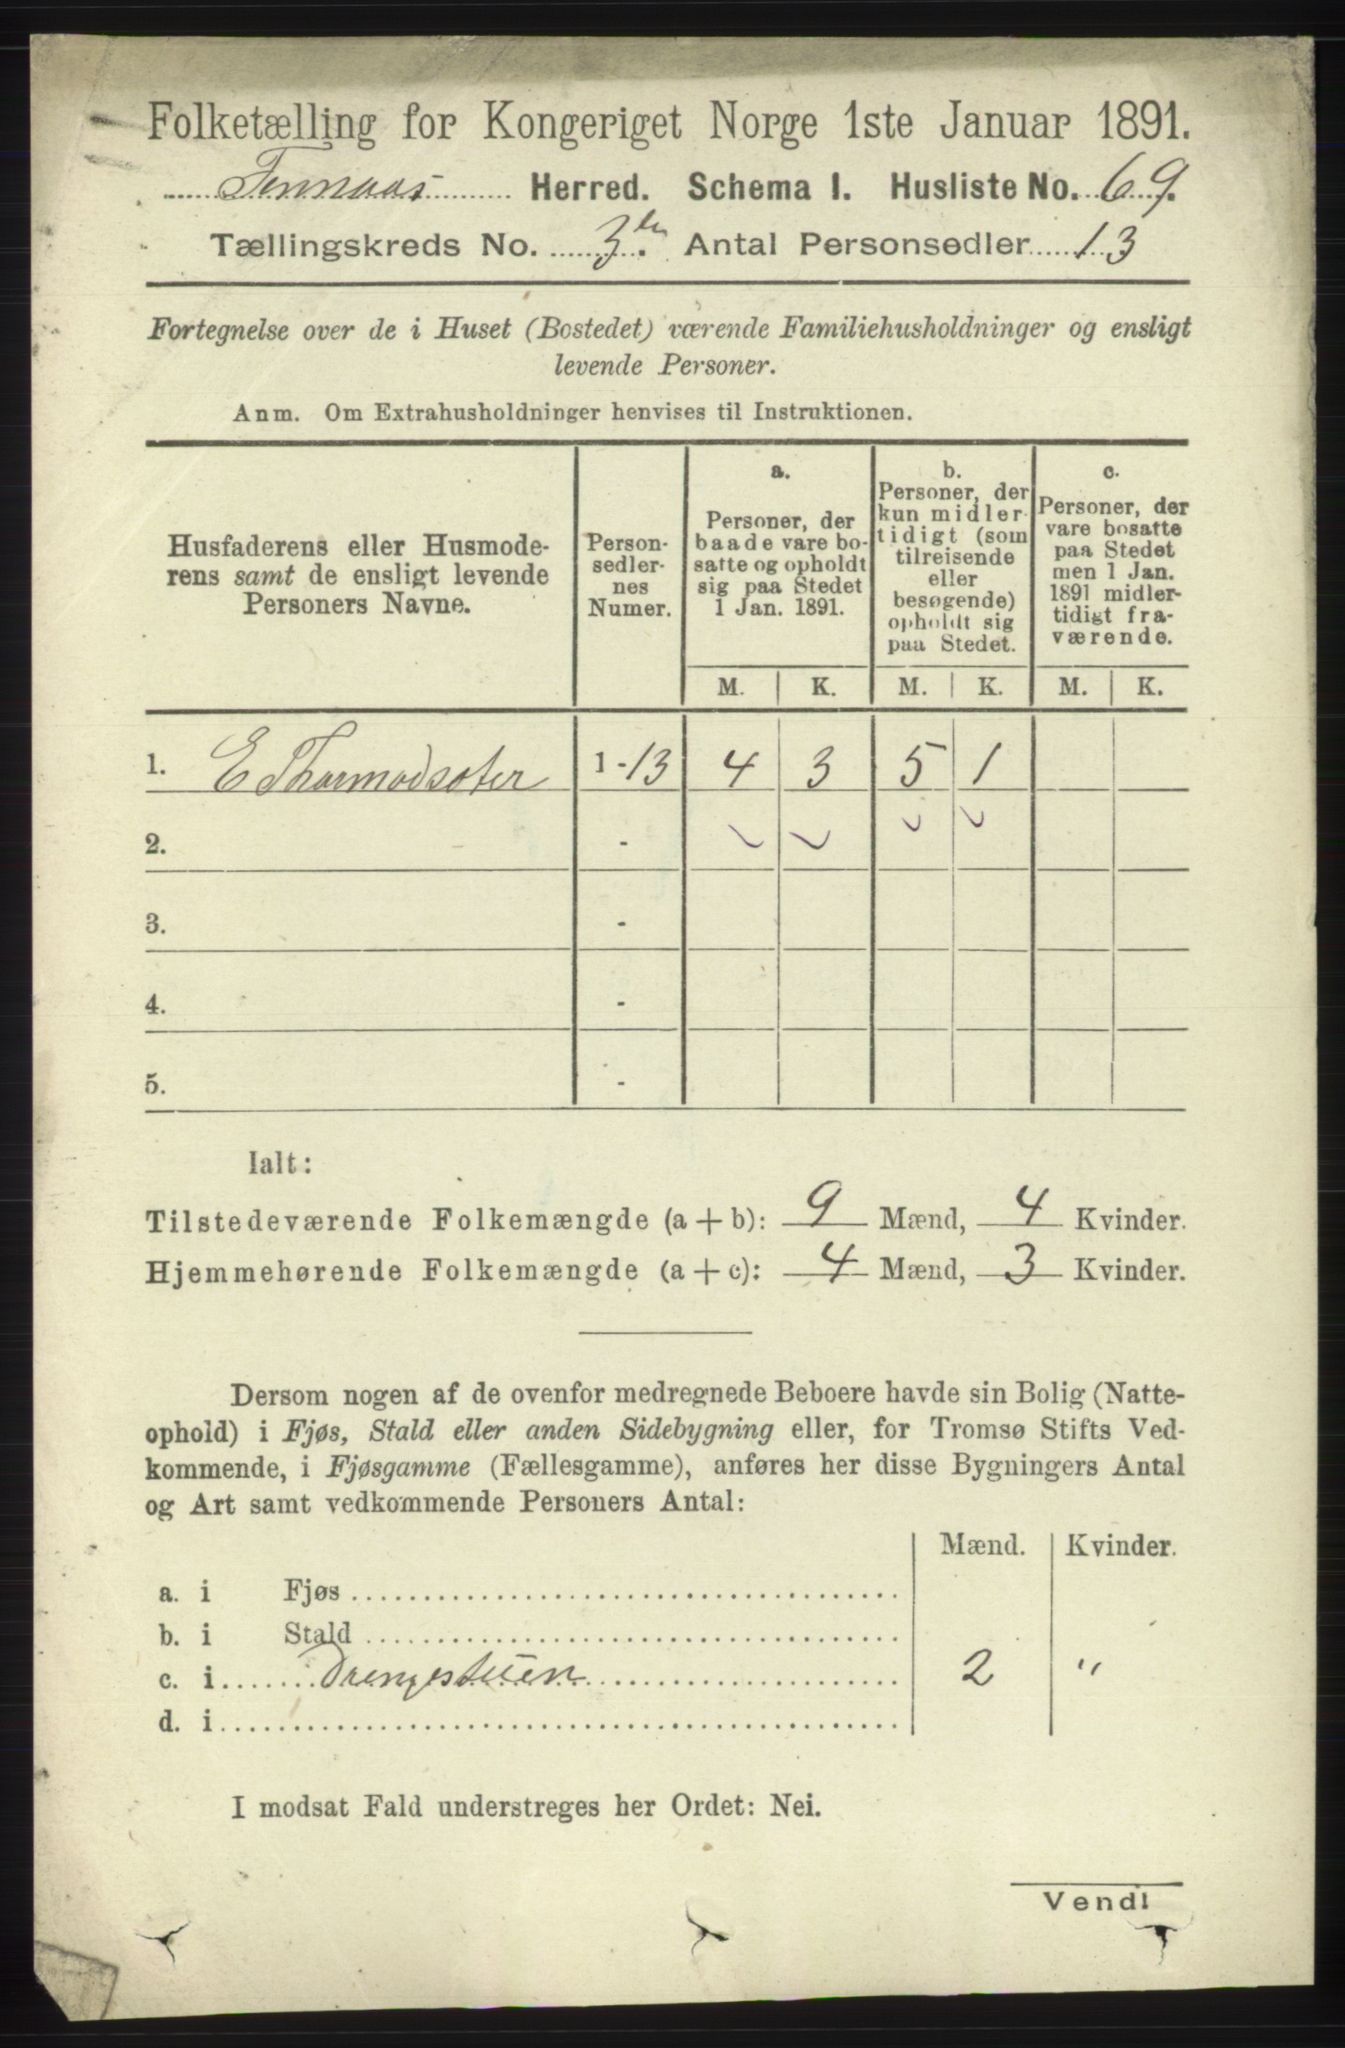 Folketælling for Kongeriget Norge 1ste Januar 1891.
Herred. Schema I. Husliste No. 69.
Tællingskreds No. 3. Antal Personsedler 13
Fortegnelse over de i Huset (Bostedet) værende Familiehusholdninger og ensligt
levende Personer.
Anm. Om Extrahusholdninger henvises til Instruktionen.
Husfaderens eller Husmode-
rens samt de ensligt levende
Personers Navne.
Person-
sedler-
nes
Numer.
a.
Personer, der
baade vare bo-
satte og opholdt
sig paa Stedet
1 Jan. 1891.
b.
Personer, der
kun midler-
tidigt (som
tilreisende
eller
besøgende)
opholdt sig
paa Stedet.
c.
Personer, der
vare bosatte
paa Stedet
men 1 Jan.
1891 midler-
tidigt fra-
værende.
M. K. M. K. M. K.
1. E Thormodsæter 1-13 4 3 5 1
2. -
3. -
4. -
5. -
Ialt:
Tilstedeværende Folkemængde (a+b): 9 Mænd, 4 Kvinder.
Hjemmehørende Folkemængde (a+c): 4 Mænd, 3 Kvinder.
Dersom nogen af de ovenfor medregnede Beboere havde sin Bolig (Natte-
ophold) i Fjøs, Stald eller anden Sidebygning eller, for Tromsø Stifts Ved-
kommende, i Fjøsgamme (Fællesgamme), anføres her disse Bygningers Antal
og Art samt vedkommende Personers Antal:
Mænd. Kvinder.
a. i Fjøs
b. i Stald
c. i Drengestuen 2 "
d. i
I modsat Fald understreges her Ordet: Nei.
Vend!